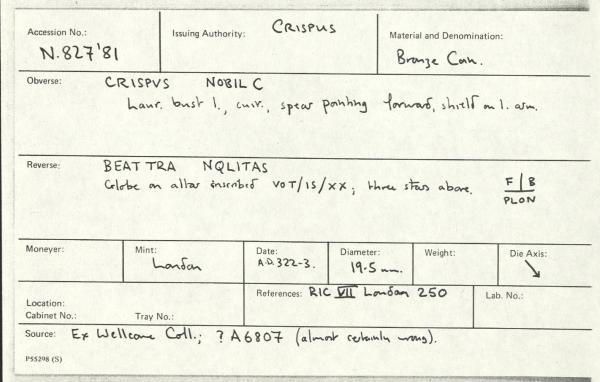 Accession No.: N.827'81
Issuing Authority: CRISPUS
Material and Denomination: Bronze Coin.
Obverse: CRISPVS NOBIL C
Laur. bust l., cuir., spear pointing forward, shield on l. arm.
Reverse: BEAT TRA NQLITAS
Globe on altar inscribed VOT/IS/XX; three stars above. F | B
PLON
Moneyer:
Mint: London
Date: A.D. 322-3.
Diameter: 19.5 mm.
Weight:
Die Axis: ↘
Location:
Cabinet No.: Tray No.:
References: RIC VII London 250
Lab. No.:
Source: Ex Wellcome Coll.; ? A6807 (almost certainly wrong).
P55298 (S)